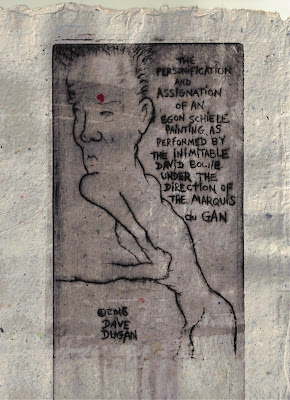 THE
PERSONIFICATION
AND
ASSIGNATION
OF AN
EGON SCHIELE
PAINTING, AS
PERFORMED BY
THE INIMITABLE
DAVID BOWIE
UNDER THE
DIRECTION OF
THE MARQUIS
du GAN
©2016
DAVE
DUGAN